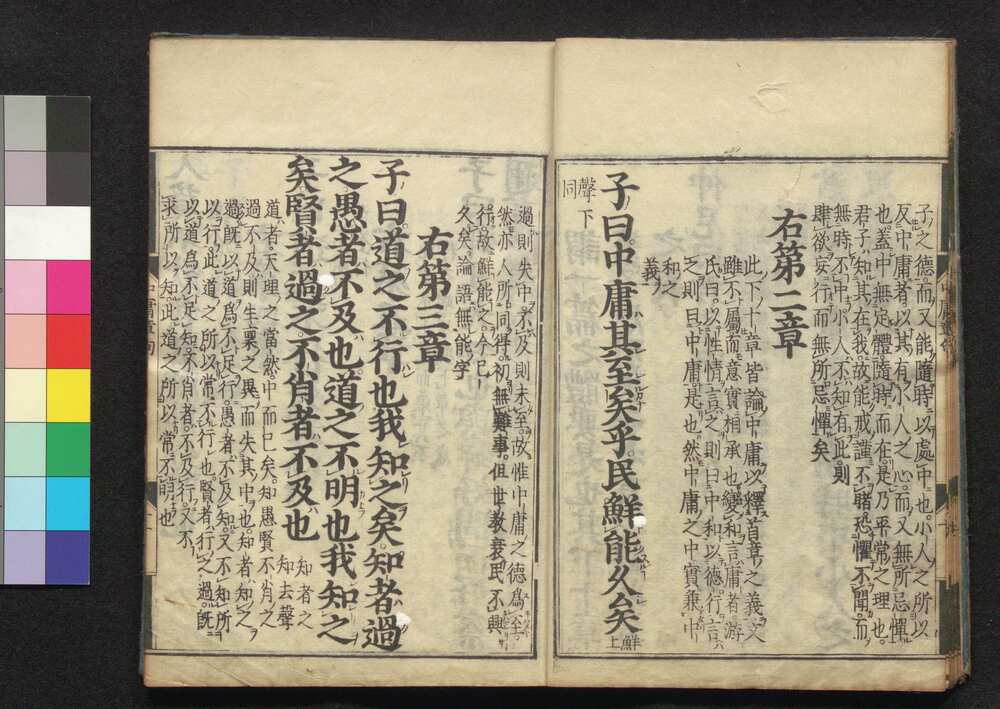 子之德而又能隨時以處中也小人之所以
反中庸者以其有小人之心而又無所忌憚
也蓋中無定體隨時而在是乃平常之理也
君子知其在我故能戒謹不睹恐懼不聞而
無時不中小人不知有此則
肆欲妄行而無所忌憚矣
右第二章
此下十章皆論中庸以釋首章之義文
雖不屬而意實相承也變和言庸者游
氏曰以性情言之則曰中和以德行言
之則曰中庸是也然中庸之中實兼中
和之
義
子曰中庸其至矣乎民鮮能久矣鮮上
聲下
同
過則失中不及則未至故惟中庸之德爲至
然亦人所同得初無難事但世教衰民不興
行故鮮能之今已
久矣論語無能字
右第三章
子曰道之不行也我知之矣知者過
之愚者不及也道之不明也我知之
矣賢者過之不肖者不及也知者之
知去聲
道者天理之當然中而已矣知愚賢不肖之
過不及則生稟之異而失其中也知者知之
過既以道爲不足行愚者不及知又不知所
以行此道之所以常不行也賢者行之過既
以道爲不足知不肖者不及行又不
求所以知此道之所以常不明也